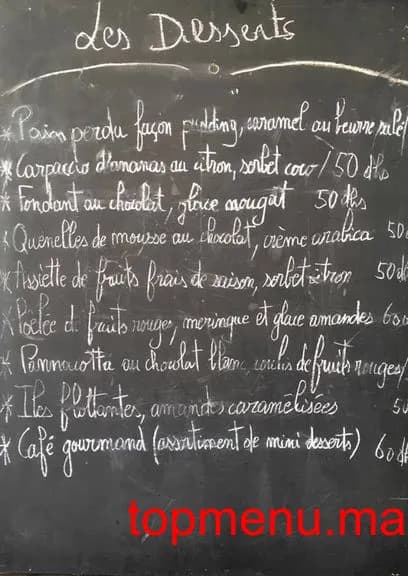 Les Desserts
* Pain perdu façon pudding, caramel au beurre salé/
* Carpaccio d'ananas au citron, sorbet coco / 50 dhs
* Fondant au chocolat, glace nougat 50 dhs
* Quenelles de mousse au chocolat, crème arabica 50
* Assiette de fruits frais de saison, sorbet citron 50 d
* Poêlée de fruits rouges, meringue et glace amandes 60
* Pannacotta au chocolat blanc, coulis de fruits rouges/
* Iles flottantes, amandes caramélisées 50
* Café gourmand (assortiment de mini desserts) 60 dh
topmenu.ma